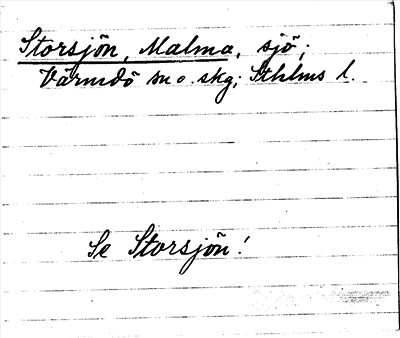 Storsjön, Malma, sjö;
Värmdö sn o. skg; Sthlms l.
Se Storsjön!